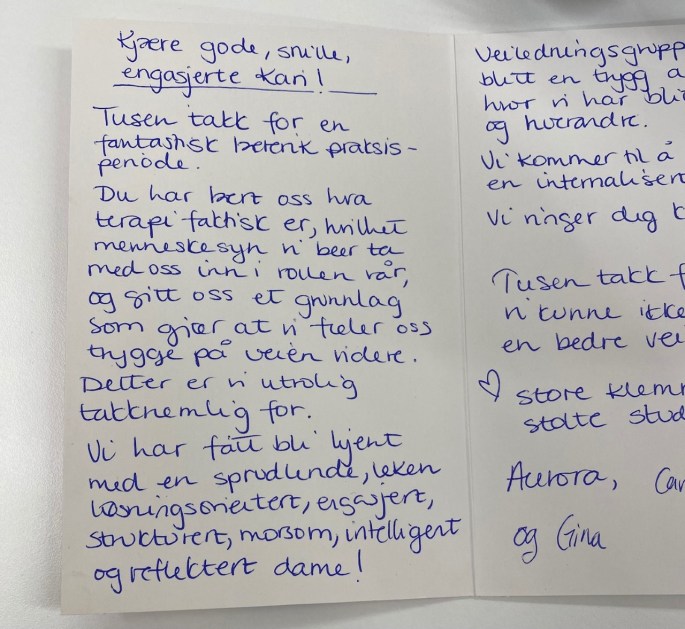 Kjære gode, snille,
engasjerte Kari!
Tusen takk for en
fantastisk beterik praksis-
periode.
Du har lært oss hva
terapi faktisk er, hvilket
menneskesyn vi bør ta
med oss inn i rollen vår,
og gitt oss et grunnlag
som gjør at vi føler oss
trygge på veien videre.
Detter er vi utrolig
takknemlig for.
Vi har fått bli kjent
med en sprudlende, leken
løsningsorientert, engasjert,
strukturert, morsom, intelligent
og reflektert dame!
Veiledningsgrupp
blitt en trygg a
hvor vi har bli
og hverandre.
Vi kommer til å
en internaliser
Vi ringer deg
Tusen takk f
vi kunne ikke
en bedre vei
store klem
stolte stud
Aurora, Ca
og Gina